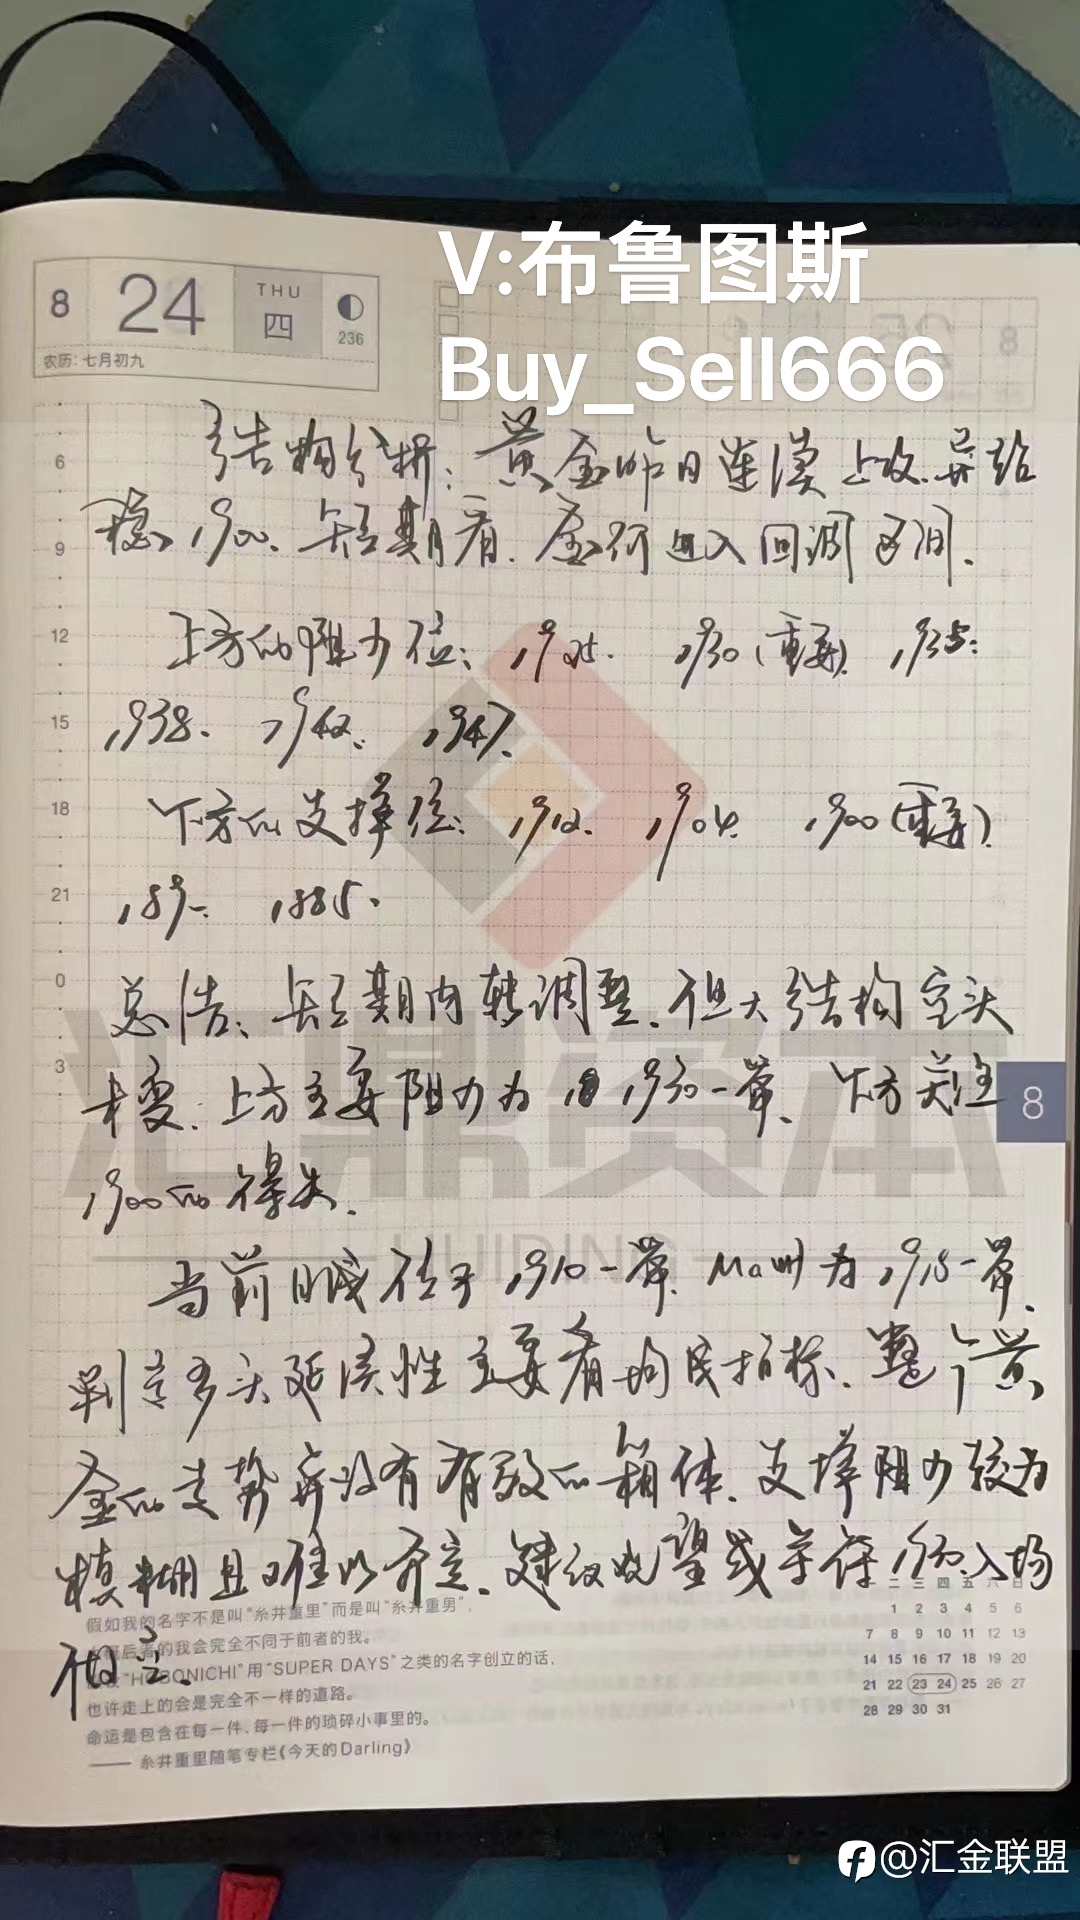 V:布鲁图斯
Buy_Sell666
8 24 THU 四 236
农历: 七月初九
8
6
结构分析: 黄金昨日连续上攻并站
稳1900. 短期看. 金价进入回调区间.
9
12
上方的阻力位: 1925. 1930(重要). 1935.
15
1938. 1942. 1947.
18
下方的支撑位: 1912. 1904. 1900(重要).
21
189 1885.
0
总结: 短期内转调整. 但大结构空头
3
未变. 上方主要阻力为 1930一带. 下方关注
8
1900的得失.
汇鼎资本
HUIDING
当前日线位于1910一带. Ma 为1918一带.
判断多头延续性主要看均线指标. 整个黄
金的走势并没有有效的箱体. 支撑阻力较为
模糊且难以界定. 建议观望或等待1930入场
做空.
假如我的名字不是叫“糸井重里”而是叫“糸井重男”,
后者的我会完全不同于前者的我。
“HOBONICHI”用“SUPER DAYS”之类的名字创立的话,
也许走上的会是完全不一样的道路。
命运是包含在每一件、每一件的琐碎小事里的。
—— 糸井重里随笔专栏《今天的Darling》
二 三 四 五 六 日
1 2 3 4 5 6
7 8 9 10 11 12 13
14 15 16 17 18 19 20
21 22 23 24 25 26 27
28 29 30 31
@汇金联盟